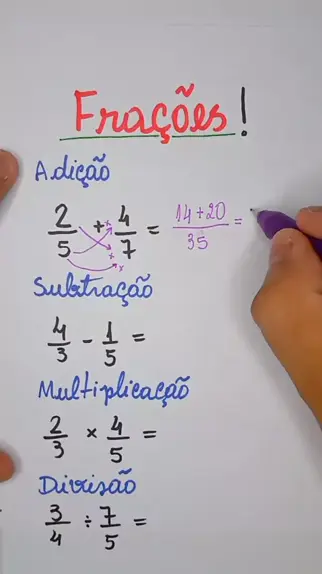 Frações!
Adição
2/5 + 4/7 = 14+20/35 =
Subtração
4/3 - 1/5 =
Multiplicação
2/3 × 4/5 =
Divisão
3/4 ÷ 7/5 =